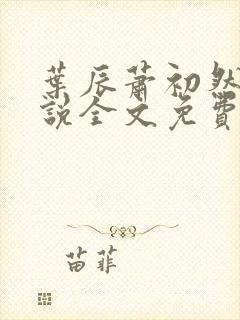 葉辰蕭初然
說全文免費
苗菲